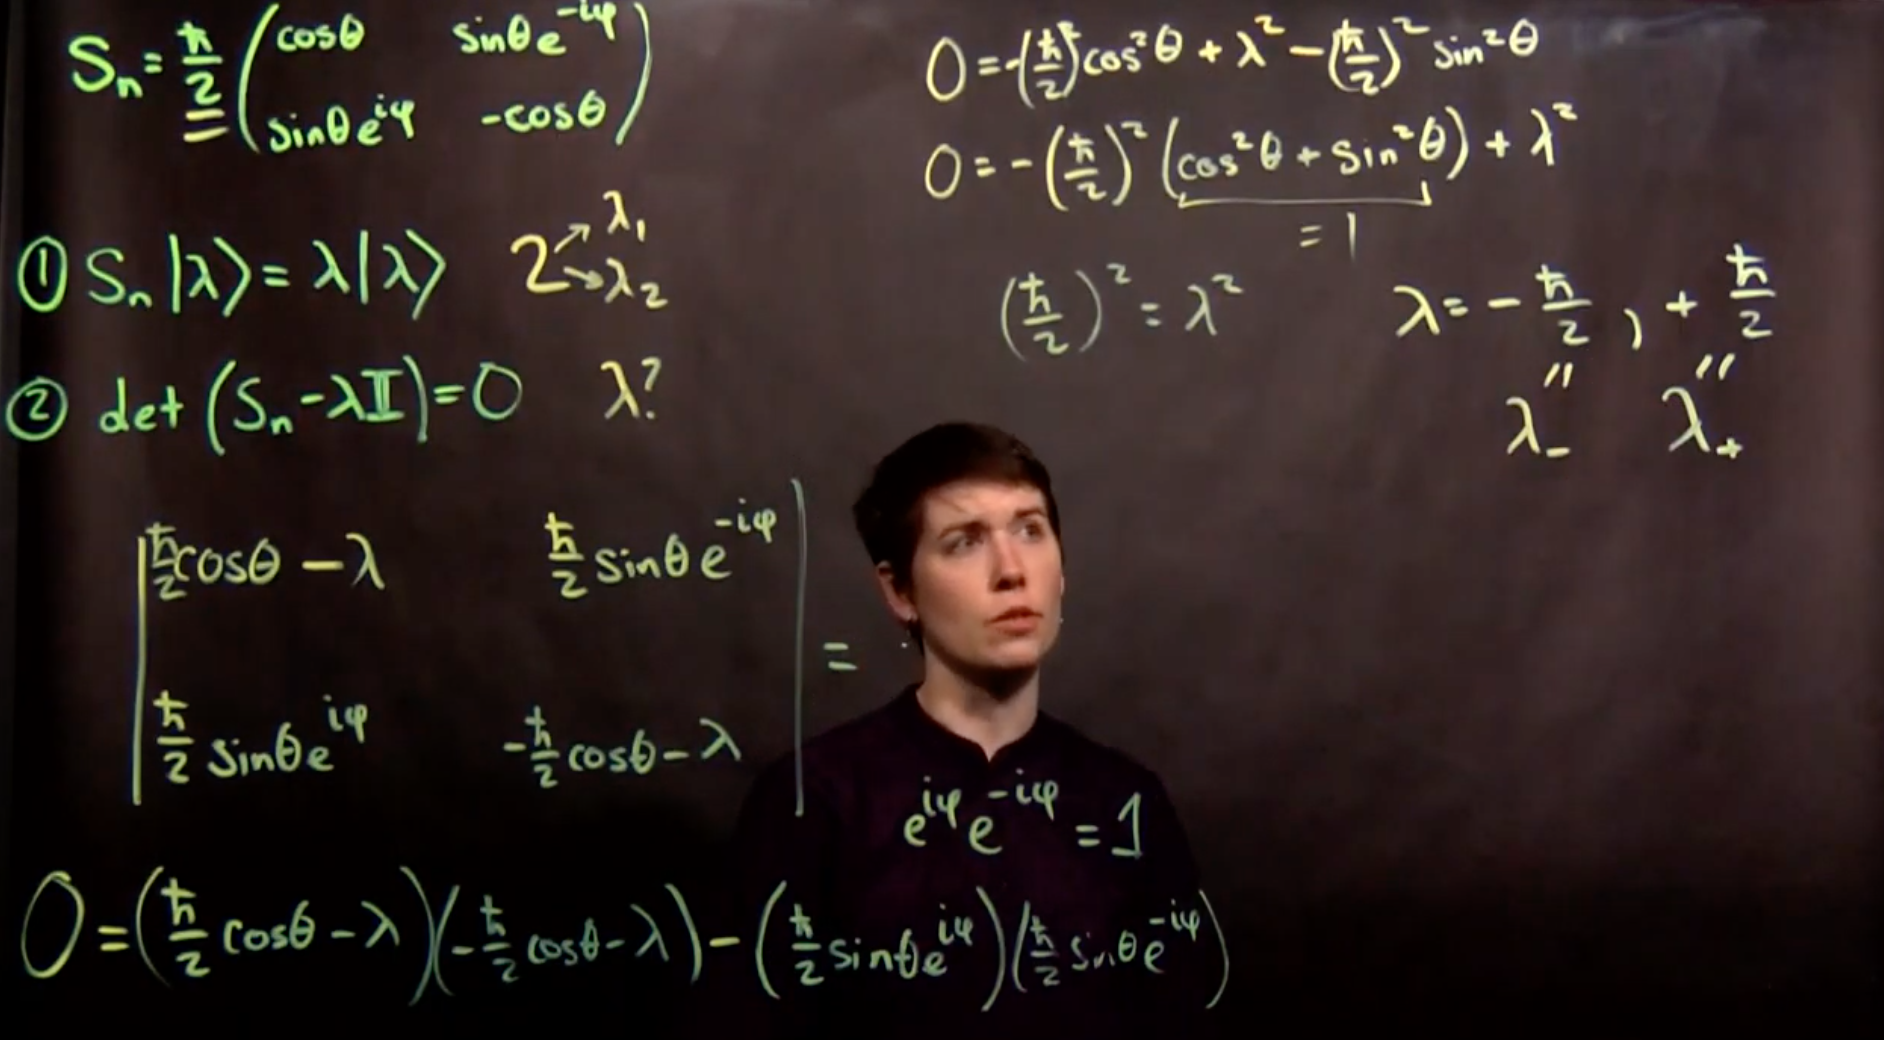 Sn = ħ/2 ( cosθ sinθe^-iφ
sinθe^iφ -cosθ )
① Sn |λ⟩ = λ|λ⟩ 2 → λ1
→ λ2
② det (Sn - λ𝕀) = 0 λ?
| ħ/2 cosθ - λ ħ/2 sinθ e^-iφ |
| ħ/2 sinθe^iφ -ħ/2 cosθ - λ | =
e^iφ e^-iφ = 1
0 = (ħ/2 cosθ - λ)(-ħ/2 cosθ - λ) - (ħ/2 sinθe^iφ)(ħ/2 sinθe^-iφ)
0 = -(ħ/2)² cos²θ + λ² - (ħ/2)² sin²θ
0 = -(ħ/2)² (cos²θ + sin²θ) + λ²
= 1
(ħ/2)² = λ² λ = - ħ/2 , + ħ/2
" "
λ- λ+